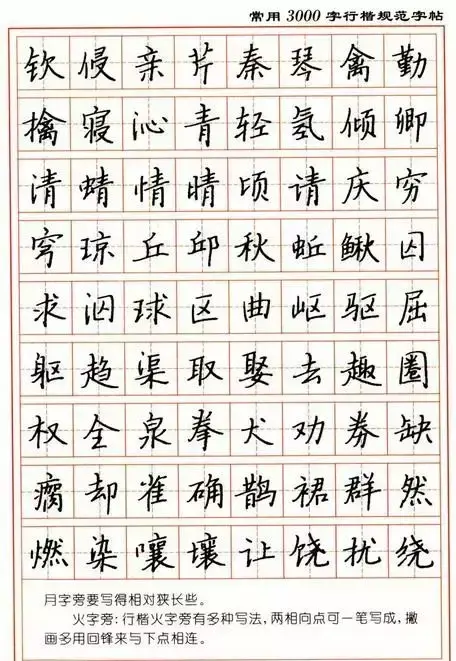 常用3000字行楷规范字帖
钦侵亲芹秦琴禽勤
擒寝沁青轻氢倾卿
清蜻情晴顷请庆穷
穹琼丘邱秋蚯鳅囚
求泅球区曲岖驱屈
躯趋渠取娶去趣圈
权全泉拳犬劝券缺
瘸却雀确鹊裙群然
燃染嚷壤让饶扰绕
月字旁要写得相对狭长些。
火字旁:行楷火字旁有多种写法,两相向点可一笔写成,撇
画多用回锋来与下点相连。